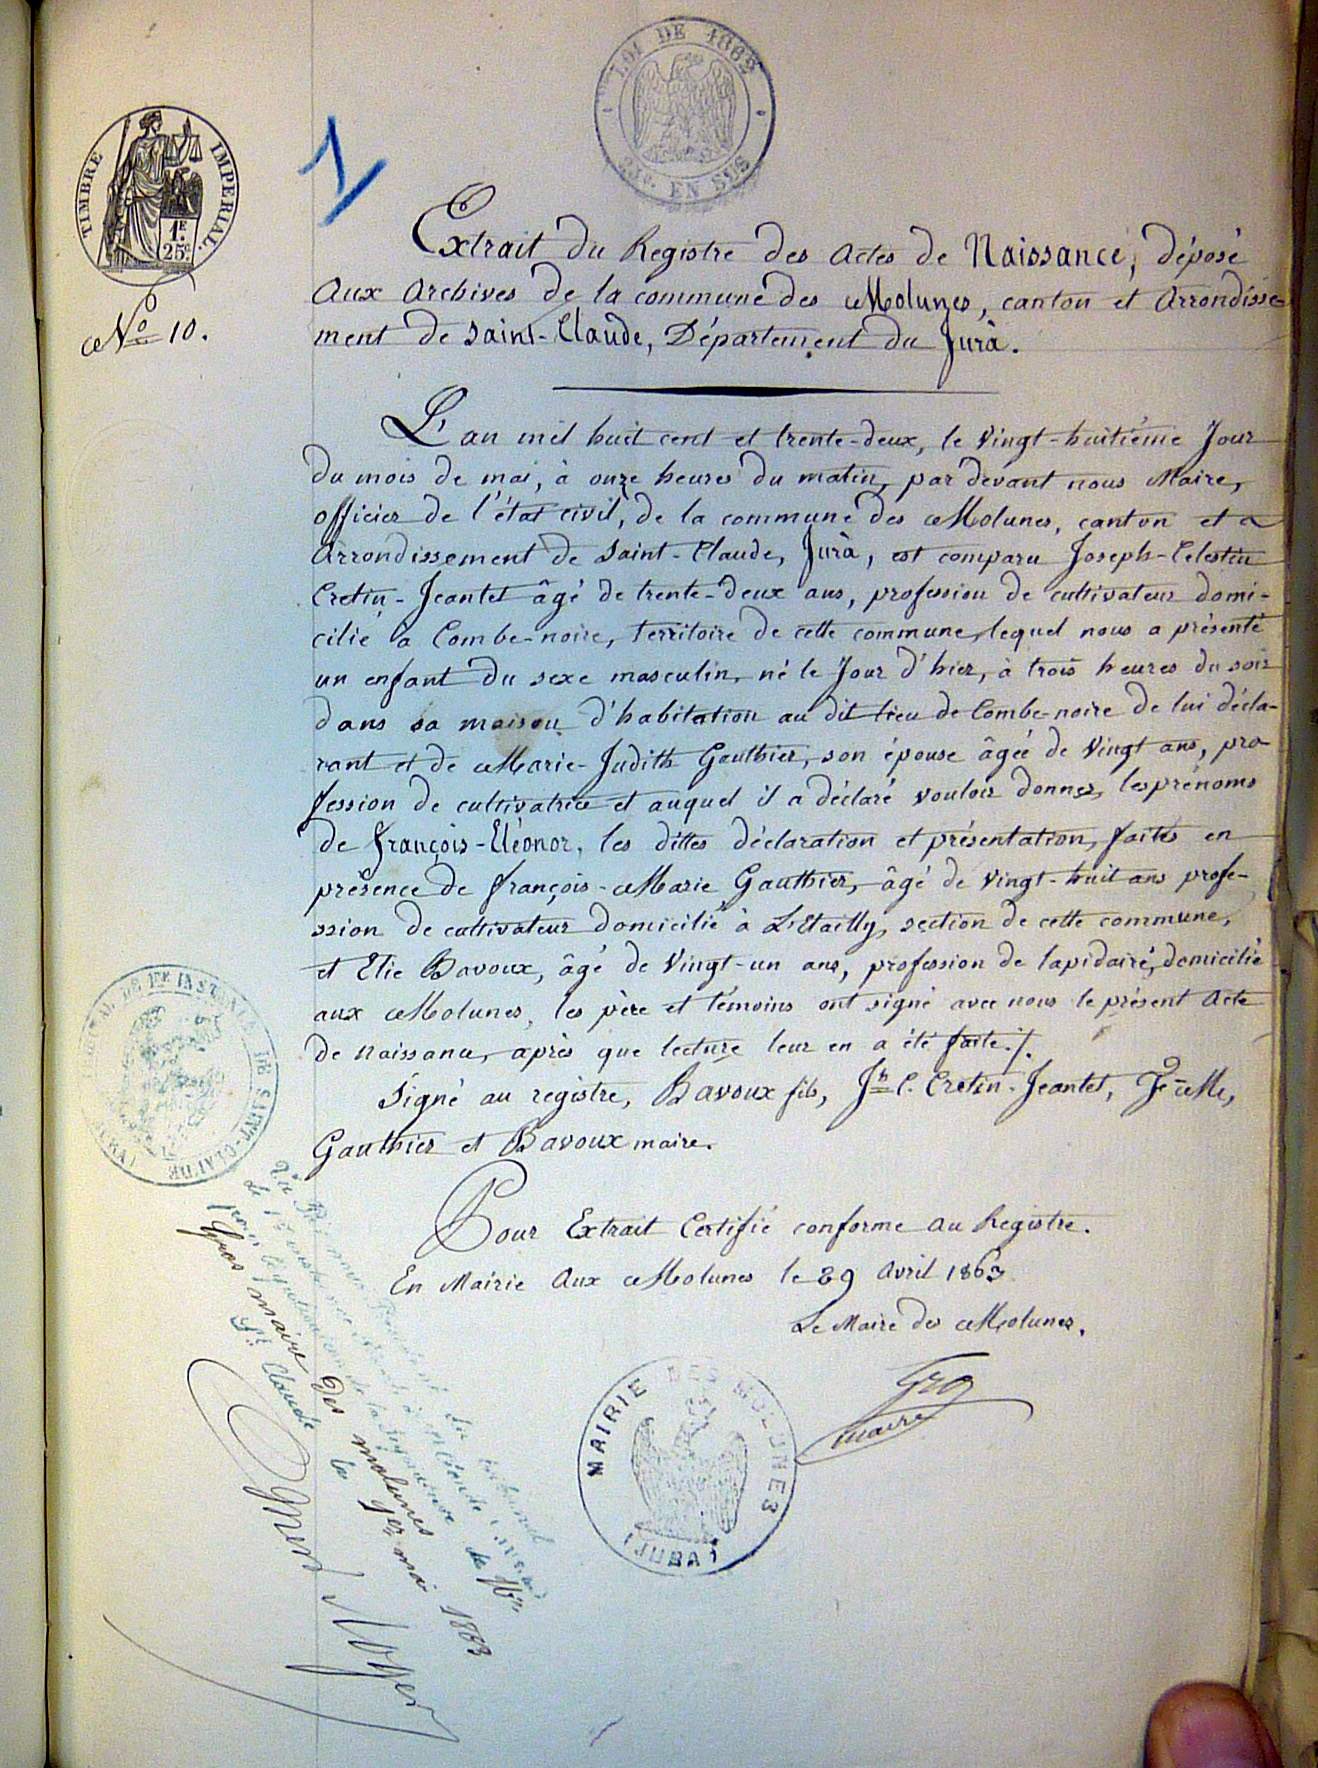 LOI DE 1862
EN SUS
TIMBRE IMPERIAL
1F.
25c.
1
No 10.
Extrait du Registre des Actes de Naissance, déposé
Aux Archives de la commune des Molunes, canton et Arrondisse-
ment de Saint-Claude, Département du Jurà.
L'an mil huit cent et trente-deux, le vingt-huitième Jour
du mois de mai, à onze heures du matin, par devant nous Maire,
officier de l'état civil, de la commune des Molunes, canton et
Arrondissement de Saint-Claude, Jurà, est comparu Joseph-Celestin
Cretin-Jeantet âgé de trente-deux ans, profession de cultivateur domi-
cilié à Combe-noire, territoire de cette commune, lequel nous a présenté
un enfant du sexe masculin, né le Jour d'hier, à trois heures du soir
dans sa maison d'habitation au dit lieu de Combe-noire de lui décla-
rant et de Marie-Judith Gauthier, son épouse âgée de vingt ans, pro-
fession de cultivatrice et auquel il a déclaré vouloir donner, les prénoms
de François-Eléonor, les dittes déclaration et présentation, faites en
présence de François-Marie Gauthier, âgé de vingt-huit ans profe-
ssion de cultivateur domicilié à L'Etailly, section de cette commune,
et Elie Bavoux, âgé de vingt-un ans, profession de lapidaire, domicilié
aux Molunes, les père et témoins ont signé avec nous le présent Acte
de naissance, après que lecture leur en a été faite./.
Signé au registre, Bavoux fils, Jh C. Cretin-Jeantet, F-Me,
Gauthier et Bavoux maire.
Pour Extrait Certifié conforme au Registre.
En Mairie Aux Molunes le 29 Avril 1863
Le Maire des Molunes.
Gros
maire
MAIRIE DES MOLUNES
(JURA)
TRIBUNAL DE 1re INSTANCE DE SAINT-CLAUDE
(JURA)
Vu par nous Président du tribunal
de 1re instance
pour légalisation de la signature de Mr
Gros maire des molunes
St Claude le 1er mai 1863